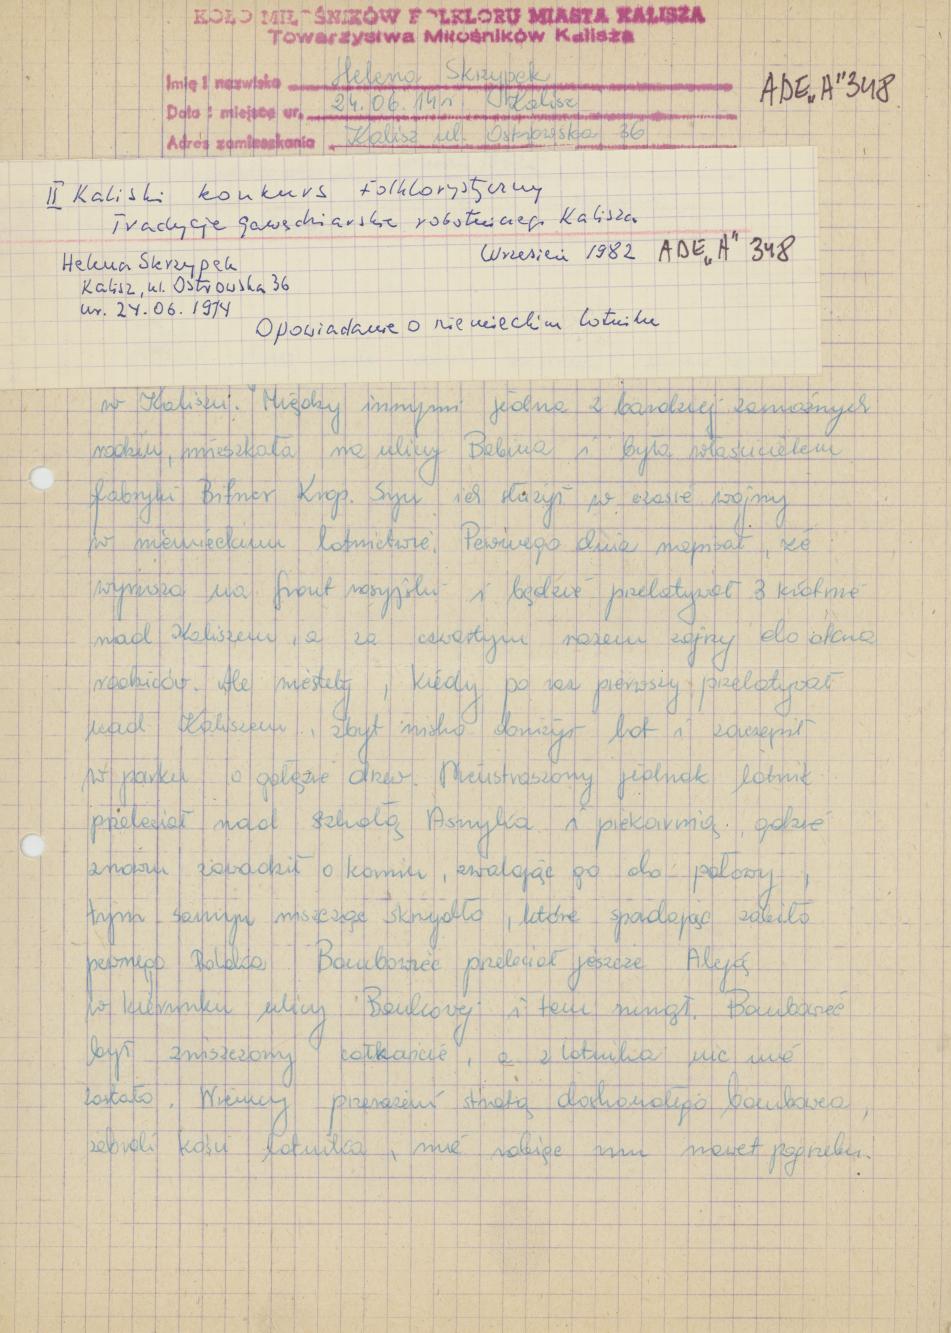 KOŁO MIŁOŚNIKÓW FOLKLORU MIASTA KALISZA
Towarzystwa Miłośników Kalisza
Imię i nazwisko Helena Skrzypek
ADE „A" 348
Data i miejsce ur. 24.06.14r Kalisz
Adres zamieszkania Kalisz ul. Ostrowska 36
II Kaliski konkurs Folklorystyczny
Tradycje gawędziarskie robotniczego Kalisza
Wrzesień 1982 ADE „A" 348
Helena Skrzypek
Kalisz, ul. Ostrowska 36
ur. 24.06.1914
Opowiadanie o niemieckim lotniku
w Kaliszu. Między innymi jedna z bardziej zamożnych
rodzin, mieszkała na ulicy Babina i była właścicielem
fabryki Bitner Krop. Syn ich służył w czasie wojny
w niemieckim lotnictwie. Pewnego dnia napisał, że
wyrusza na front rosyjski i będzie przelatywał 3 krotnie
nad Kaliszem, a za czwartym razem zajrzy do okna
rodziców. Ale niestety, kiedy po raz pierwszy przelatywał
nad Kaliszem, zbyt nisko obniżył lot i zaczepił
w parku o gałęzie drzew. Nieustraszony jednak lotnik
przeleciał nad szkołą Asnyka i piekarnią, gdzie
znowu zawadził o komin, zwalając go do połowy,
tym samym niszcząc skrzydło, które spadając zabiło
pewnego Polaka Bombowiec przeleciał jeszcze Aleją
w kierunku ulicy Bankowej i tam runął. Bombowiec
był zniszczony całkowicie, a z lotnika nic nie
zostało. Niemcy przerażeni stratą doskonałego bombowca,
zebrali kości lotnika, nie robiąc mu nawet pogrzebu.